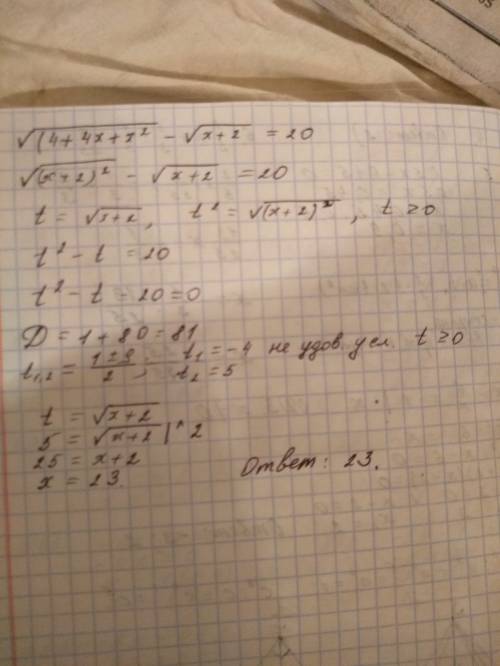 √(4 + 4x + x² - √x+2 = 20
√(x+2)² - √x+2 = 20
t = √x+2, t² = √(x+2)², t ≥ 0
t² - t = 20
t² - t - 20 = 0
D = 1 + 80 = 81
t₁,₂ = (1±9)/2; t₁ = -4 не удов. усл. t ≥ 0
t₂ = 5
t = √x+2
5 = √x+2 |^2
25 = x+2
x = 23.
Ответ: 23.